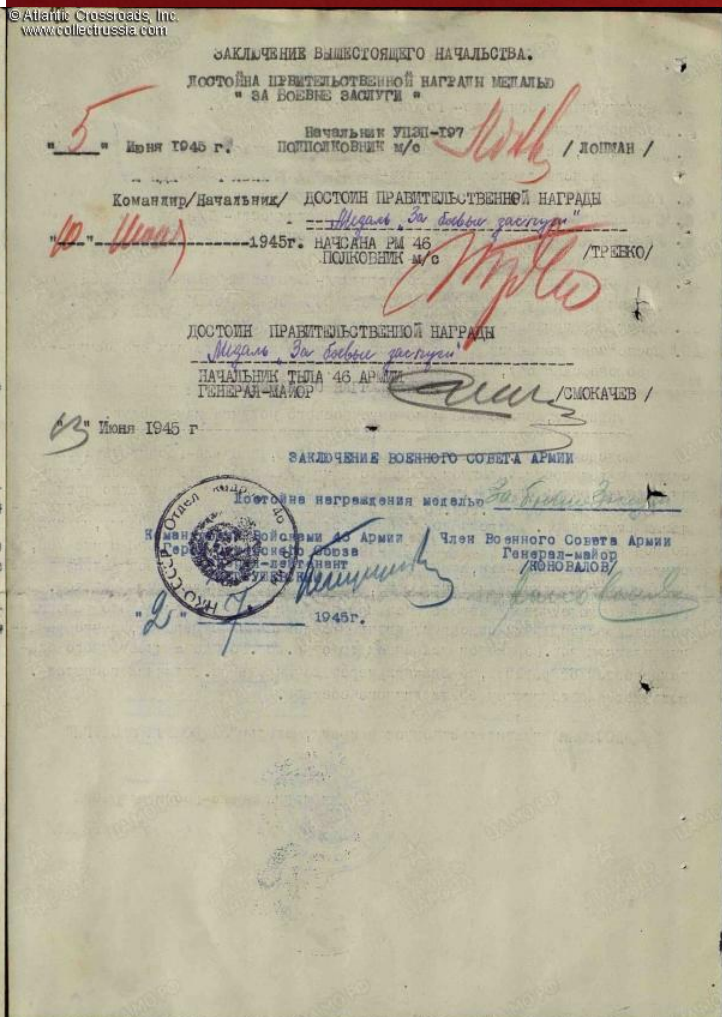 © Atlantic Crossroads, Inc.
www.collectrussia.com
ЗАКЛЮЧЕНИЕ ВЫШЕСТОЯЩЕГО НАЧАЛЬСТВА.
ДОСТОЙНА ПРАВИТЕЛЬСТВЕННОЙ НАГРАДЫ МЕДАЛЬЮ
" ЗА БОЕВЫЕ ЗАСЛУГИ "
Начальник УПЭП-197
" 5 " Июня 1945 г. ПОДПОЛКОВНИК м/с / ЛОЦМАН /
Командир/Начальник/ ДОСТОИН ПРАВИТЕЛЬСТВЕННОЙ НАГРАДЫ
Медаль „За боевые заслуги"
"10" Июня 1945г. НАЧСАНА РМ 46 /ТРЕБКО/
ПОЛКОВНИК м/с
ДОСТОИН ПРАВИТЕЛЬСТВЕННОЙ НАГРАДЫ
Медаль „За боевые заслуги"
НАЧАЛЬНИК ТЫЛА 46 АРМИИ
ГЕНЕРАЛ-МАЙОР /СМОКАЧЕВ /
"13" Июня 1945 г
ЗАКЛЮЧЕНИЕ ВОЕННОГО СОВЕТА АРМИИ
Достойна награждения медалью За боевые заслуги
Войсками 46 Армии Член Военного Совета Армии
Союза Генерал-майор
/КОНОВАЛОВ/
НКО-СССР Отдел
"2" 7. 1945г.